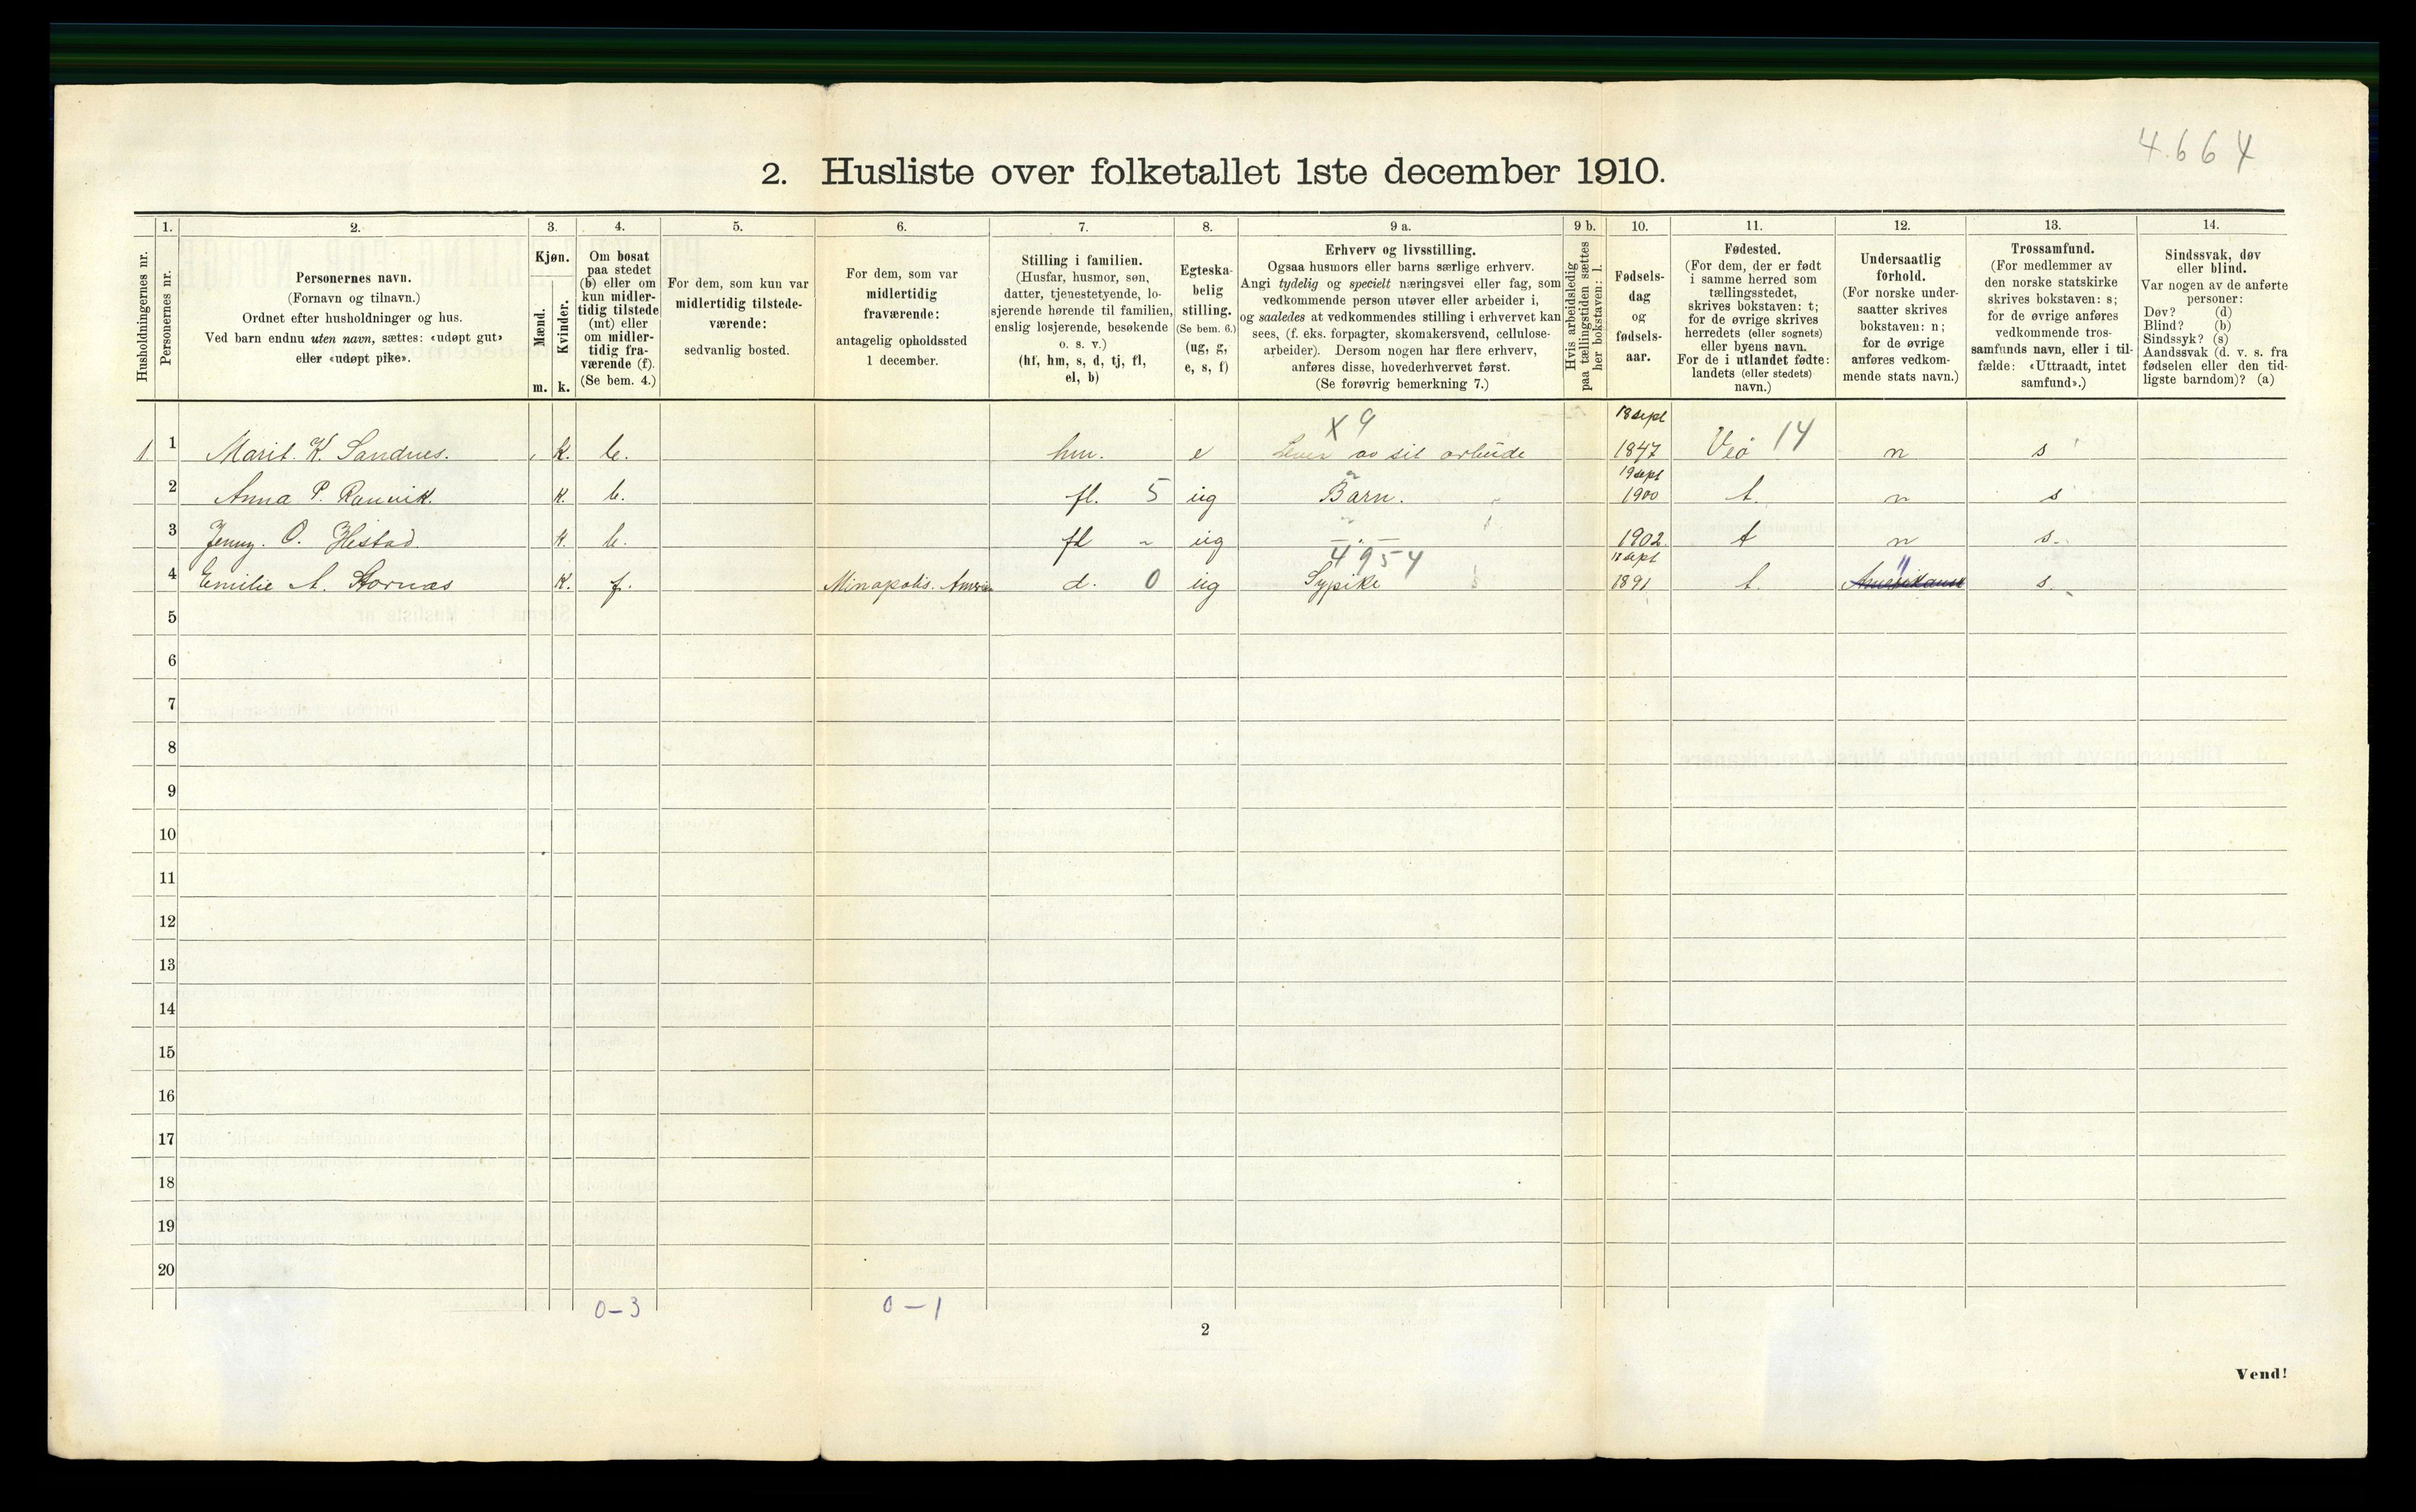 4.664
2. Husliste over folketallet 1ste december 1910.
Husholdningernes nr.
1. Personernes nr.
2. Personernes navn. (Fornavn og tilnavn.) Ordnet efter husholdninger og hus. Ved barn endnu uten navn, sættes: «udøpt gut» eller «udøpt pike».
3. Kjøn. Mænd. m. Kvinder. k.
4. Om bosat paa stedet (b) eller om kun midlertidig tilstede (mt) eller om midlertidig fraværende (f). (Se bem. 4.)
5. For dem, som kun var midlertidig tilstedeværende: sedvanlig bosted.
6. For dem, som var midlertidig fraværende: antagelig opholdssted 1 december.
7. Stilling i familien. (Husfar, husmor, søn, datter, tjenestetyende, losjerende hørende til familien, enslig losjerende, besøkende o. s. v.) (hf, hm, s, d, tj, fl, el, b)
8. Egteskabelig stilling. (Se bem. 6.) (ug, g, e, s, f)
9 a. Erhverv og livsstilling. Ogsaa husmors eller barns særlige erhverv. Angi tydelig og specielt næringsvei eller fag, som vedkommende person utøver eller arbeider i, og saaledes at vedkommendes stilling i erhvervet kan sees, (f. eks. forpagter, skomakersvend, cellulosearbeider). Dersom nogen har flere erhverv, anføres disse, hovederhvervet først. (Se forøvrig bemerkning 7.)
9 b. Hvis arbeidsledig paa tællingstiden sættes her bokstaven: l.
10. Fødselsdag og fødselsaar.
11. Fødested. (For dem, der er født i samme herred som tællingsstedet, skrives bokstaven: t; for de øvrige skrives herredets (eller sognets) eller byens navn. For de i utlandet fødte: landets (eller stedets) navn.)
12. Undersaatlig forhold. (For norske undersaatter skrives bokstaven: n; for de øvrige anføres vedkommende stats navn.)
13. Trossamfund. (For medlemmer av den norske statskirke skrives bokstaven: s; for de øvrige anføres vedkommende trossamfunds navn, eller i tilfælde: «Uttraadt, intet samfund».)
14. Sindssvak, døv eller blind. Var nogen av de anførte personer: Døv? (d) Blind? (b) Sindssyk? (s) Aandssvak (d. v. s. fra fødselen eller den tidligste barndom)? (a)
x 9 18 sept
1 1 Marit. K. Sandnes. k. b. hm. e Lever av sit arbeide 1847 Veø 14 n s
19 sept
2 Anna P. Ranvik. k. b. fl. 5 ug Barn. 1900 t. n s
3 Jenny. O. Hestad. k. b. fl ~ ug —.— 1902 t n s.
4954
4 Emilie A. Stornæs k. f. Minapolis. d. 0 ug Sypike 1891 t. Amerikansk " s.
5
6
7
8
9
10
11
12
13
14
15
16
17
18
19
20
0–3 0–1
2
Vend!